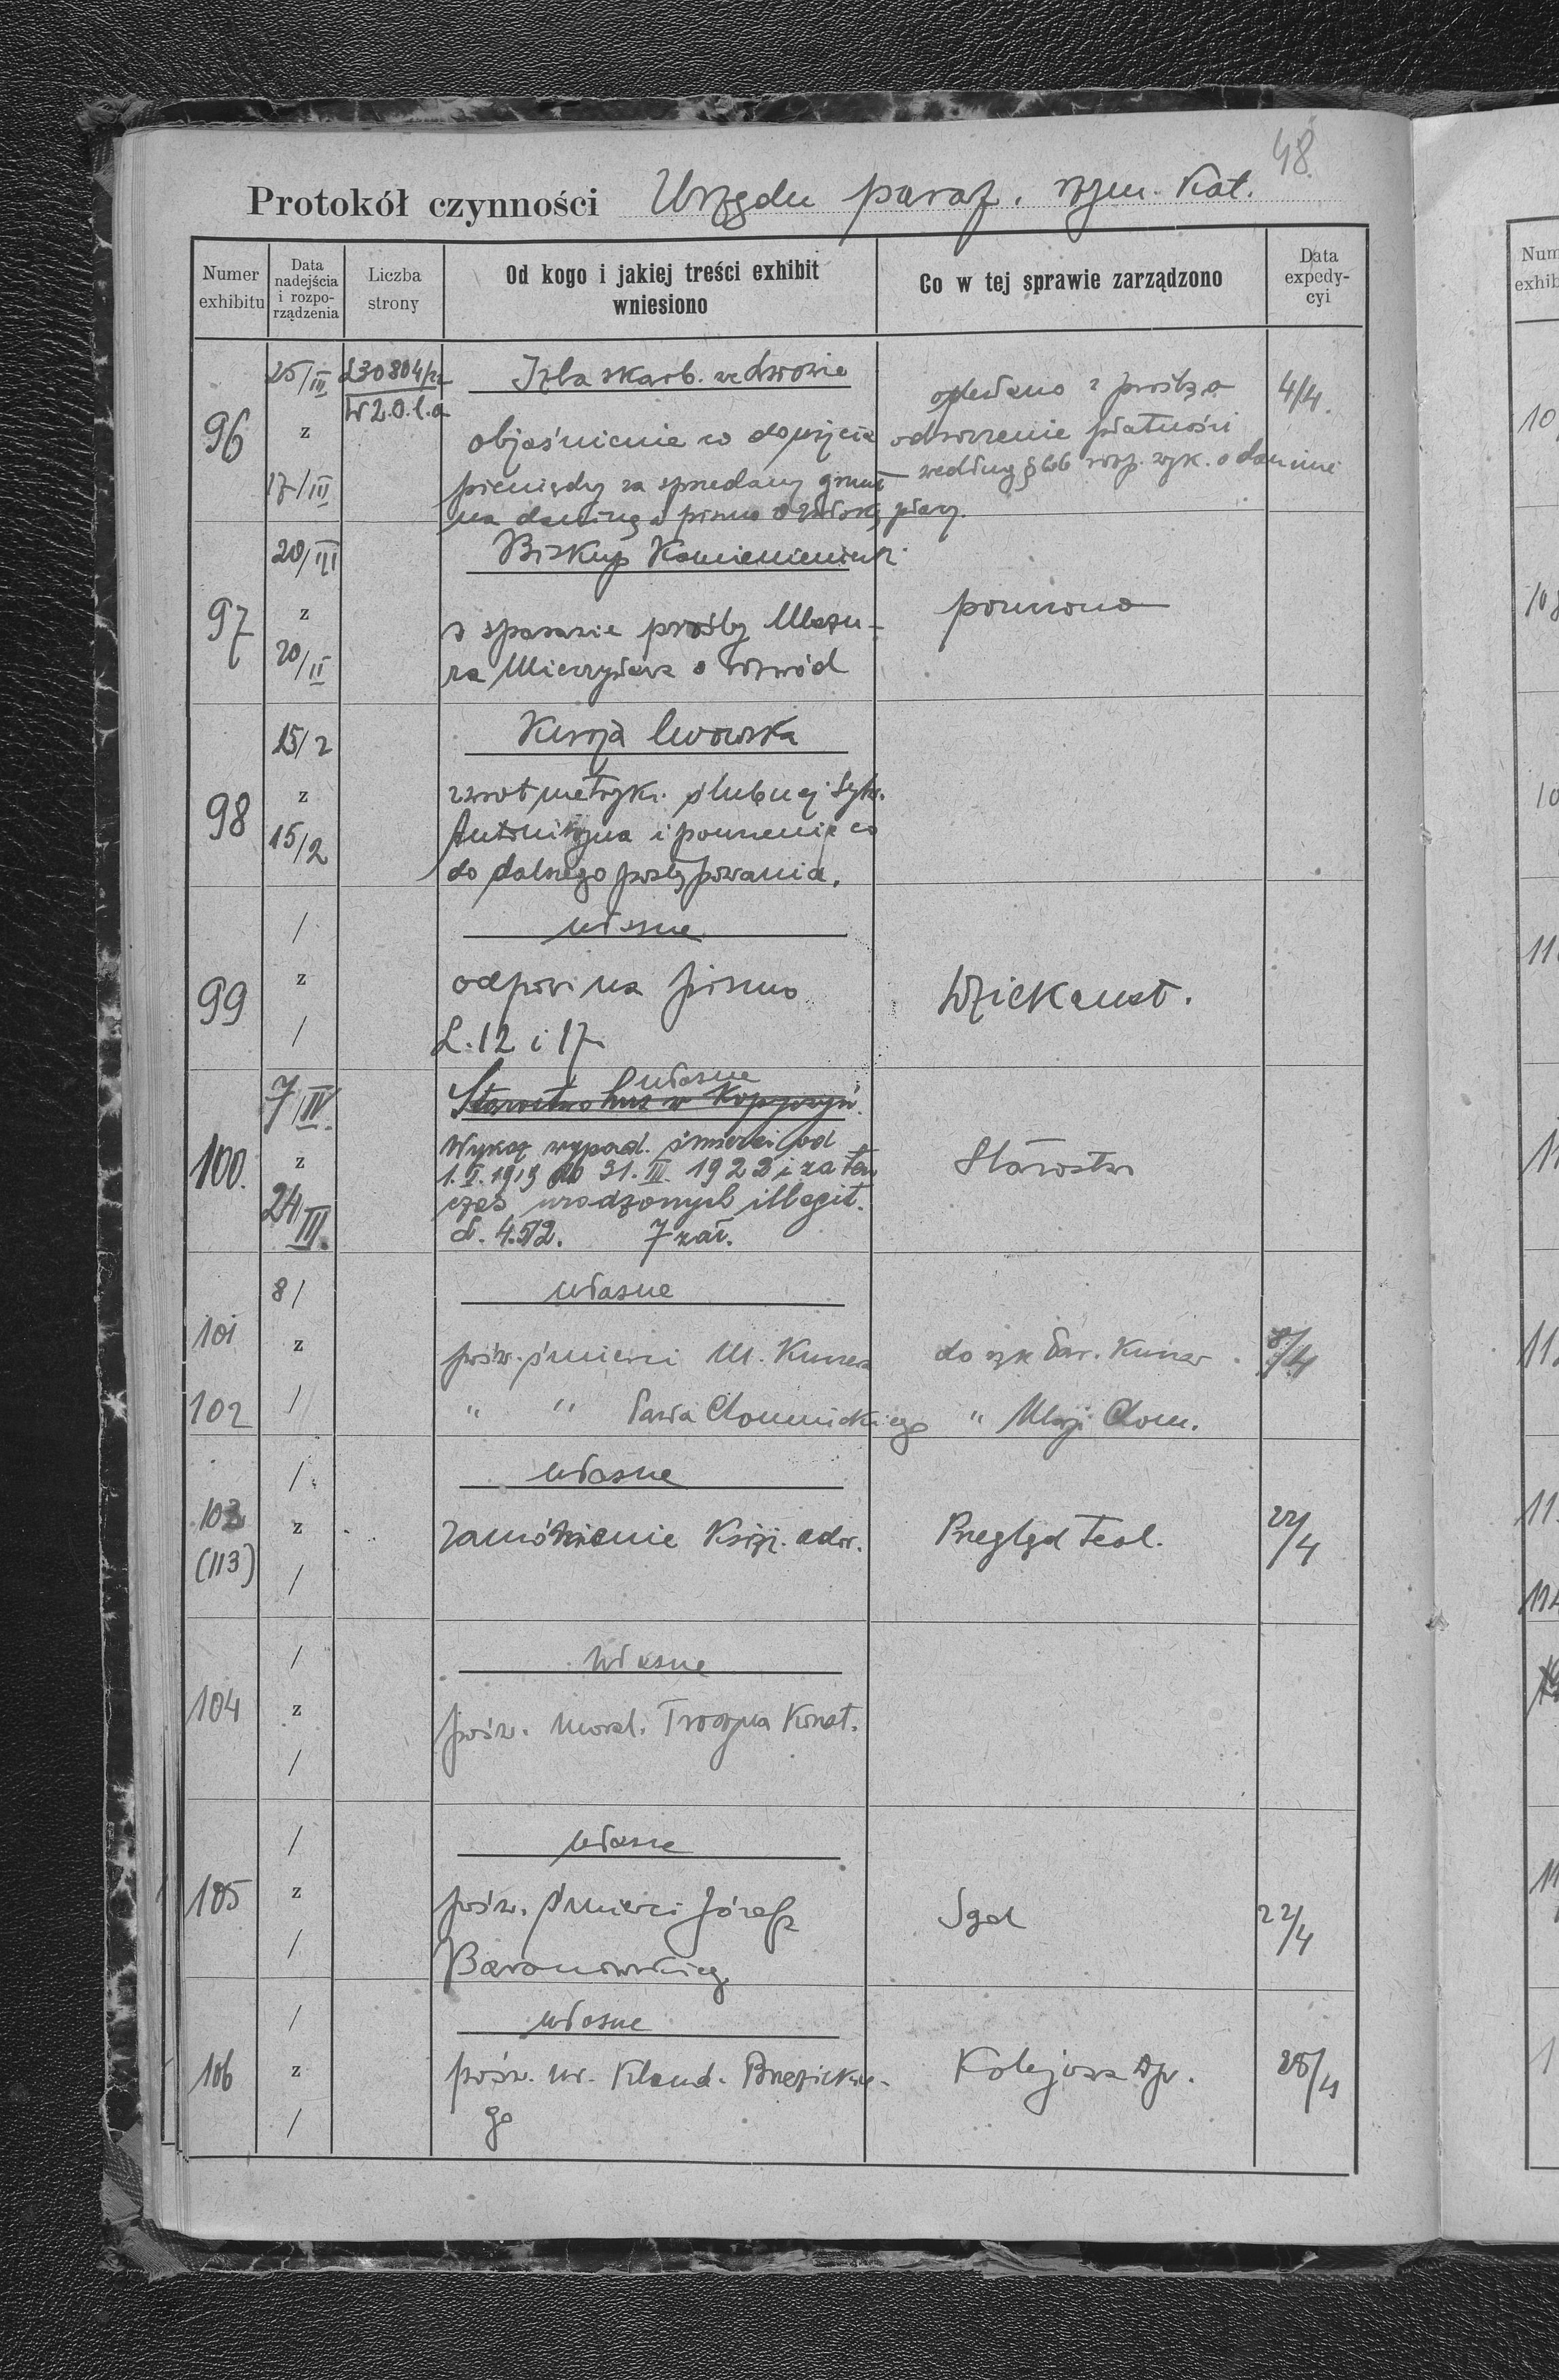 48.
Protokół czynności Urzędu paraf. rzym. Kat.
Numer exhibitu
Data nadejścia i rozporządzenia
Liczba strony
Od kogo i jakiej treści exhibit wniesiono
Co w tej sprawie zarządzono
Data expedycyi
96
25/III z 17/III
L30804/22
W 2.0.l.a
Izba skarb. we Lwowie
objaśnienie co do użycia
pieniędzy za sprzedany grunt
na daninę a pismo
z prośbą o
odroczenie płatności
według § 66 rozp. wyk. o daninie
4/4.
97
20/III z 20/II
Biskup Kamieniecki
w sprawie prośby Mazu-
ra Mieczysława o rozwód
98
15/2 z 15/2
Kurja lwowska
zwrot metryki ślubnej Syl.
Antoniszyna i pouczenie co
do dalszego postępowania.
99
/ z /
własne
odpow. na pismo
L. 12 i 17
Dziekanat.
100.
7/IV. z 24/III.
własne
Starostwo w Kopyczyń.
Wykaz wypad. śmierci od
1.I.1919 do 31.III.1922 i za ten
czas urodzonych illegit.
L. 452. 7 zał.
Starostwo
101
8/ z /
własne
pośw. śmierci M. Kunza
do rąk Kunza
8/4
102
" " Chominickiego
" Chom.
103
(113)
/ z /
własne
zamówienie Książ. ador.
Przegląd teol.
22/4
104
/ z /
własne
pośw. moral.
105
/ z /
własne
pośw. śmierci Józefa
Baranowskieg.
Sąd
22/4
106
/ z /
własne
pośw. ur. Klaud. Brzezickie-
go
Kolejowa Dyr.
28/4